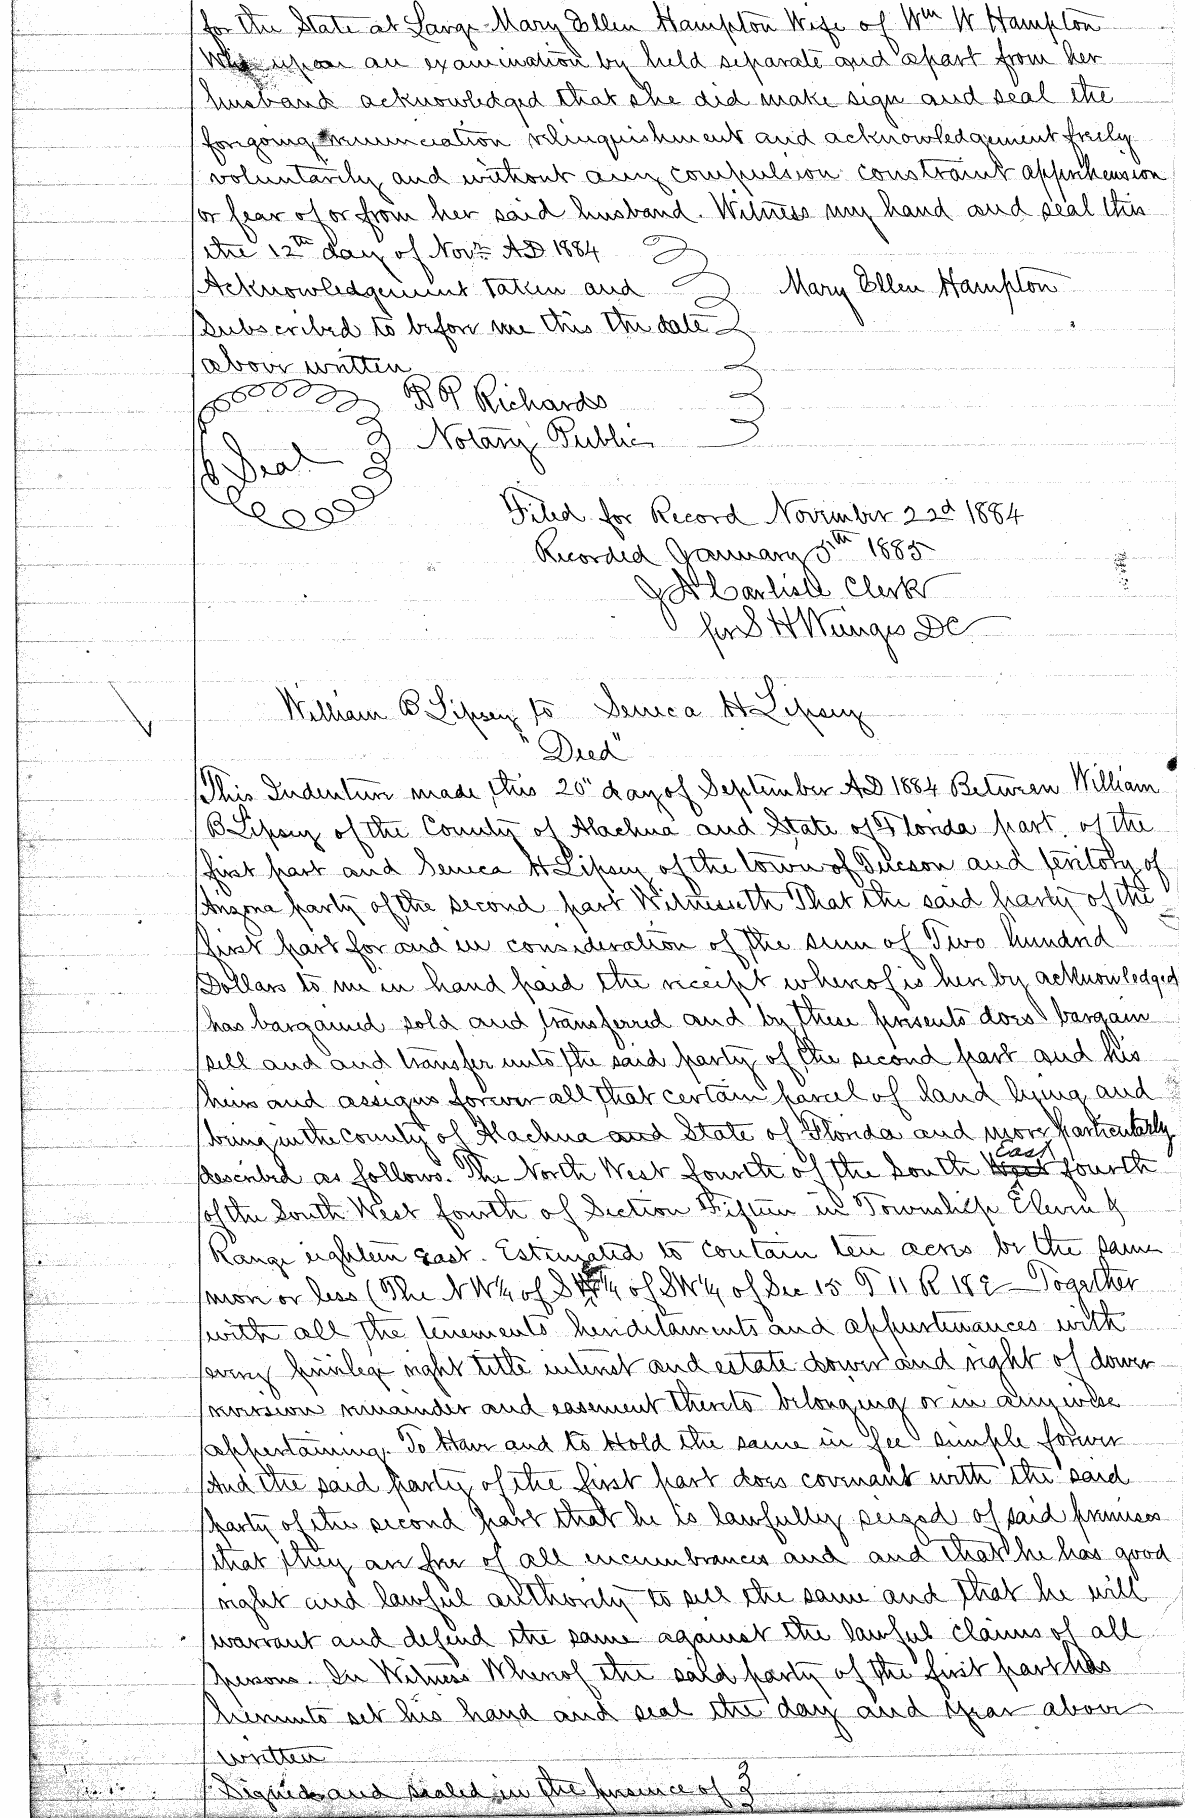 for the State at Large Mary Ellen Hampton Wife of Wm W Hampton
Who upon an examination by held separate and apart from her
husband acknowledged that she did make sign and seal the
forgoing renunciation relinquishment and acknowledgement freely
voluntarily and without any compulsion constraint apprehension
or fear of or from her said husband. Witness my hand and seal this
the 12th day of Novr AD 1884
Acknowledgement taken and Mary Ellen Hampton
Subscribed to before me this the date
above written
B P Richards
Notary Public
Seal
Filed for Record November 22d 1884
Recorded January 5th 1885
J A Carlisle Clerk
per S H Wienges DC
William B Lipsey to Seneca H Lipsey
"Deed"
This Indenture made this 20" day of September AD 1884 Between William
B Lipsey of the County of Alachua and State of Florida part. of the
first part and Seneca H Lipsey of the town of Tucson and teritory of
Arizona party of the second part Witnesseth That the said party of the
first part for and in consideration of the sum of Two hundred
Dollars to me in hand paid the receipt whereof is hereby acknowledged
has bargained sold and transferred and by these presents does bargain
sell and and transfer unto the said party of the second part and his
heirs and assigns forever all that certain parcel of land lying and
being in the county of Alachua and State of Florida and more particularly
described as follows. The North West fourth of the South East fourth
of the South West fourth of Section Fifteen in Township Eleven &
Range eighteen east. Estimated to contain ten acres be the same
more or less (The NW¼ of SE¼ of SW¼ of Sec 15 T 11 R 18 E Together
with all the tenements hereditaments and appurtenances with
every privilege right title interest and estate dower and right of dower
reversion remainder and easement thereto belonging or in anywise
appertaining. To Have and to Hold the same in fee simple forever
And the said party of the first part does covenant with the said
party of the second part that he is lawfully seized of said premises
that they are free of all encumbrances and and that he has good
right and lawful authority to sell the same and that he will
warrant and defend the same against the lawful claims of all
persons. In Witness Whereof the said party of the first part has
hereunto set his hand and seal the day and year above
written
Signed and sealed in the presence of